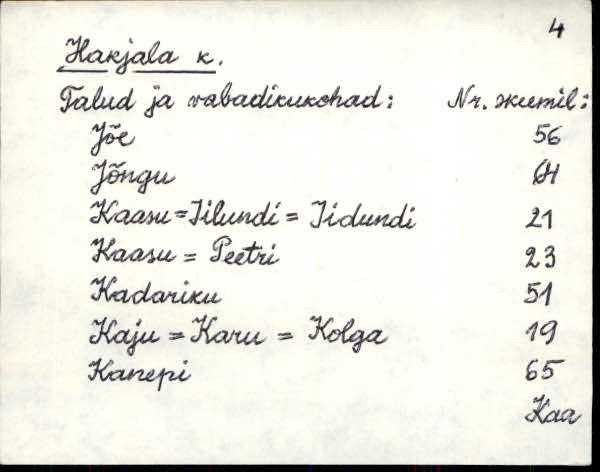 4
Harjala k.
Talud ja vabadikukohad: Nr. skeemil:
Jõe 56
Jõngu 64
Kaasu=Iilundi = Iidundi 21
Kaasu = Peetri 23
Kadariku 51
Kaju = Karu = Kolga 19
Kanepi 65
Kaa